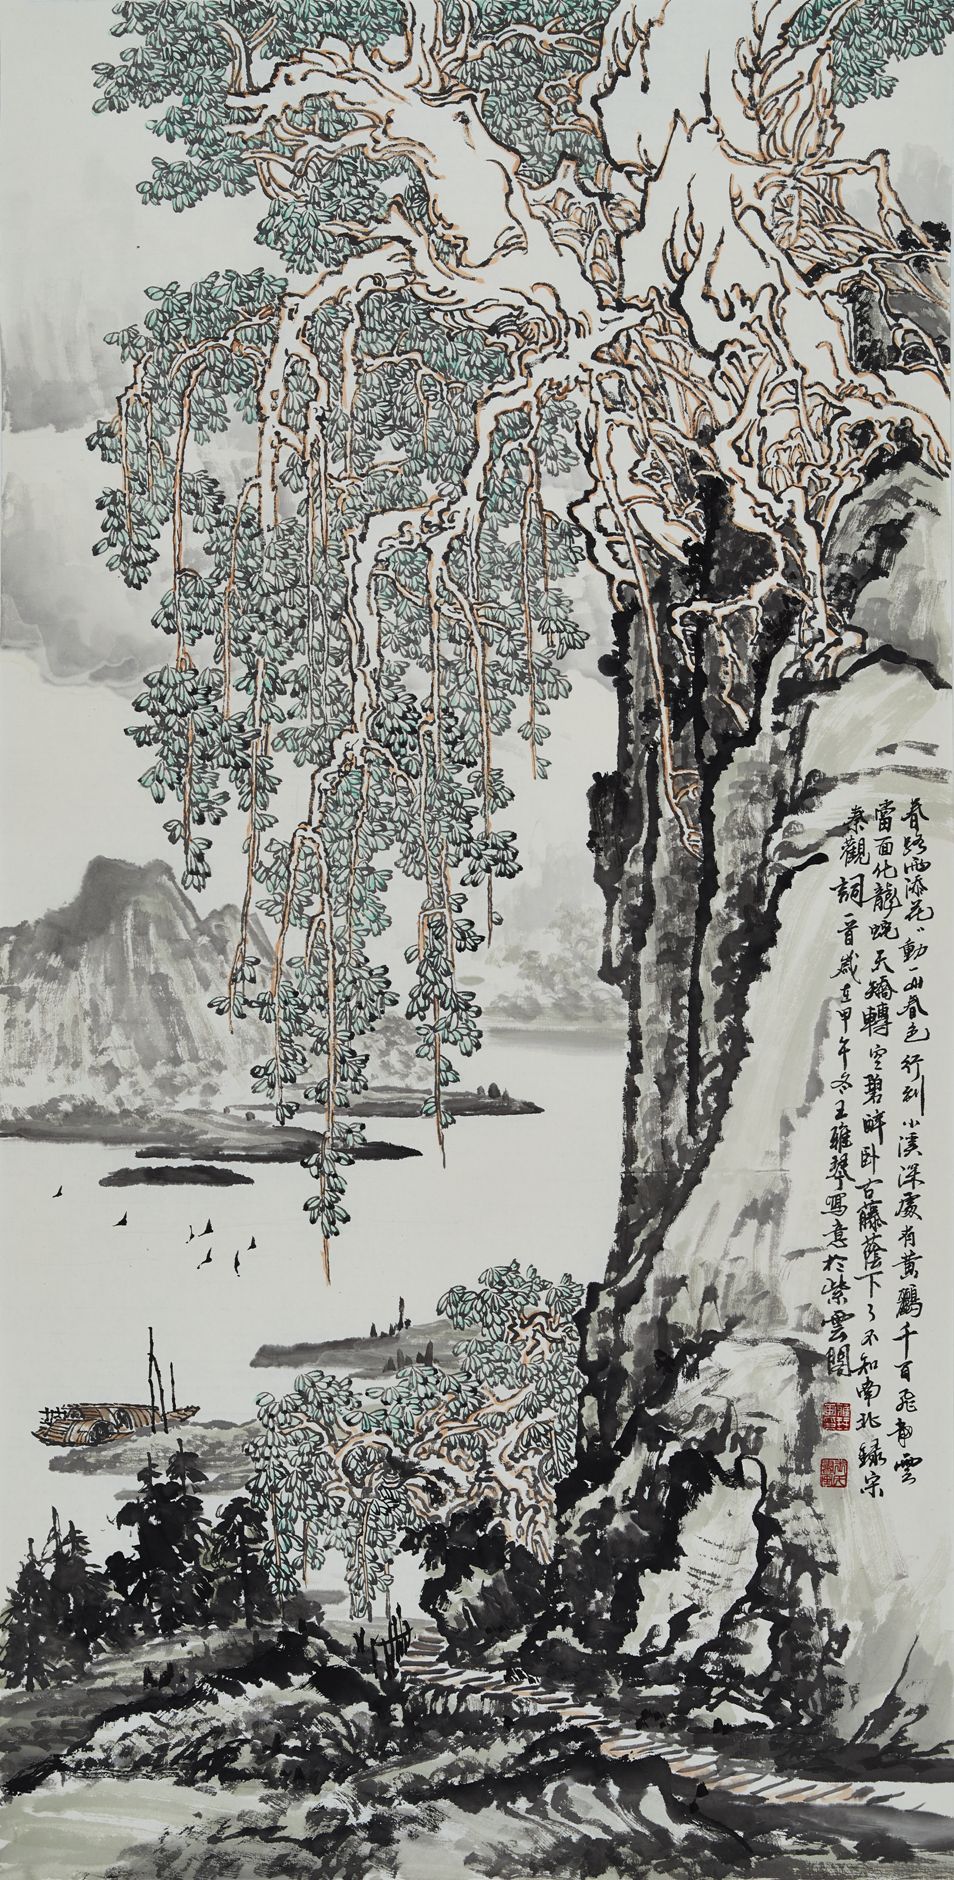 春路雨添花〻動一山春色行到小溪深處有黃鸝千百飛雲
當面化龍蛇夭矯轉空碧醉卧古藤蔭下了不知南北錄宋
秦觀詞一首歲在甲午冬王雅琴寫意於紫雲閣